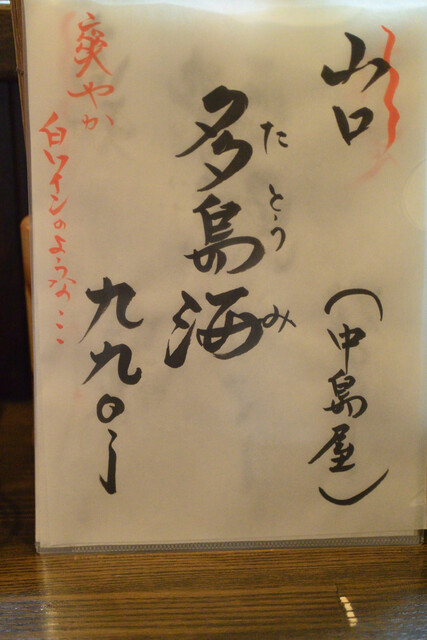 山口
(中島屋)
多島海
たとうみ
九九〇
爽やか
白ワインのような